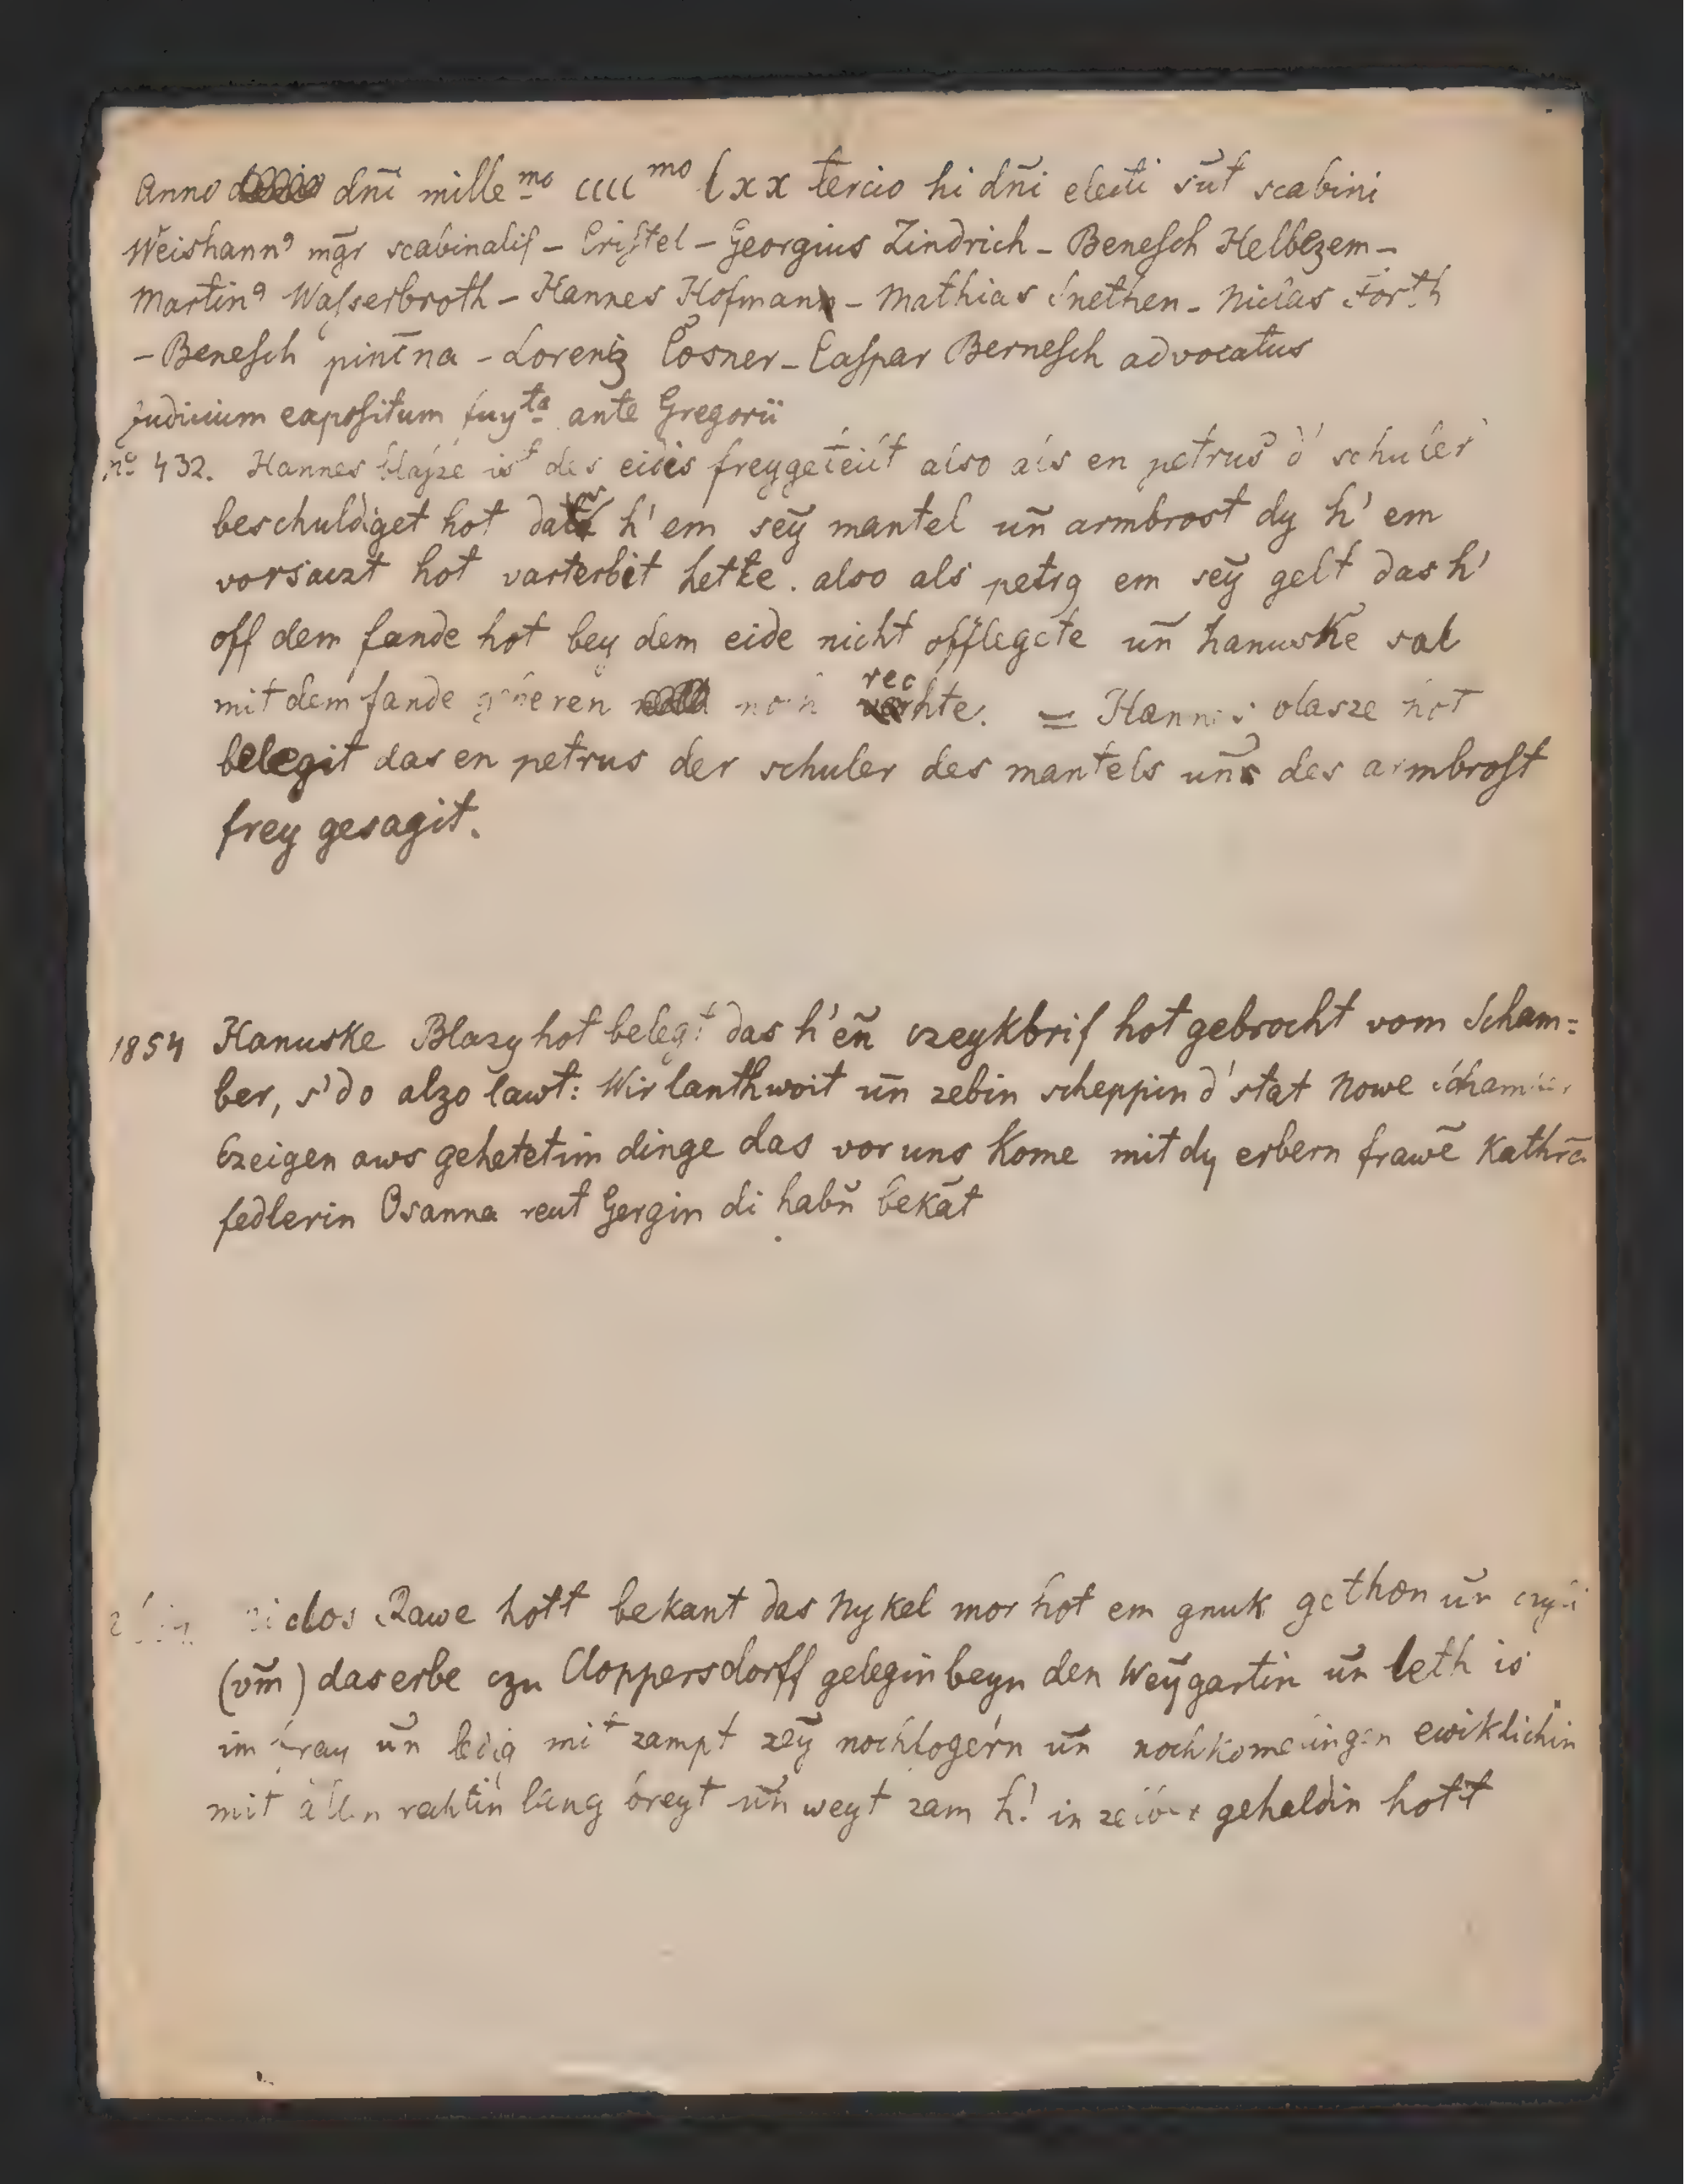 Anno dñi mille mo cccc mo lxx tercio hi dñi electi sūt scabini
Weishann9 mgr̄ scabinalis – Cristel – Georgius Lindrich – Benesch Helbczem –
Martin9 Wasserbroth – Hannes Hofmann – Mathias Snethen – Niclas Förth
– Benesch – Lorenz Cosner – Caspar Bernesch advocatus
judicium expositum ante Gregorii
no 432. Hannes blasze ist des eidis freygeteilt also als en petrus d' schuler
beschuldiget hot das h' em sey̅ mantel un̄ armbrost dy h' em
vorsaczt hot varterbit hette. also als petrg em sey̅ gelt das h'
off dem fande hot bey dem eide nicht offlegete un̄ hanuske sal
mit dem fande geberen noch rechte. = Hannes blasze hot
belegit das en petrus der schuler des mantels un̄ des armbrost
frey gesagit.
1854 Hanuske Blazy hot belegt das h' en̄ czeykbrif hot gebrocht vom Scham=
ber, s' do alzo lawt: Wir lanthwoit un̄ zebin scheppin d' stat Nowe Schamber
Czeigen aws gehetetim dinge das vor uns kome mit dy erbern frawē Kathrē
fedlerin Osanna reut Gergin di habn̄ bekāt
Niclos Rawe hott bekant das Nykel mor hot em gnuk gethon un̄
(vm̄) das erbe czu Cloppersdorff gelegin beyn den Wey̅gartin un̄ leth is
im fray un̄ ledig mit zampt zey̅ nochlogern un̄ nochkomelingen ewiklichin
mit allen rechtin lang breyt un̄ weyt zam h' in gehaldin hott